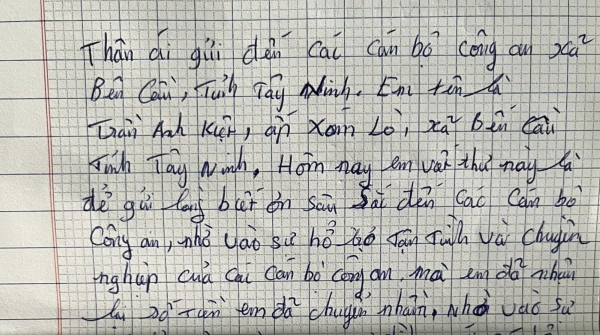 Thân ái gửi đến các cán bộ công an xã
Bến Cầu, Tỉnh Tây Ninh. Em tên là
Trần Anh Kiệt, ấp Xóm Lò, xã Bến Cầu
tỉnh Tây Ninh. Hôm nay em viết thư này là
để gửi lòng biết ơn sâu sắc đến các cán bộ
Công an, nhờ vào sự hỗ trợ tận tình và chuyên
nghiệp của các cán bộ công an mà em đã nhận
lại số tiền em đã chuyển nhầm. Nhờ vào sự